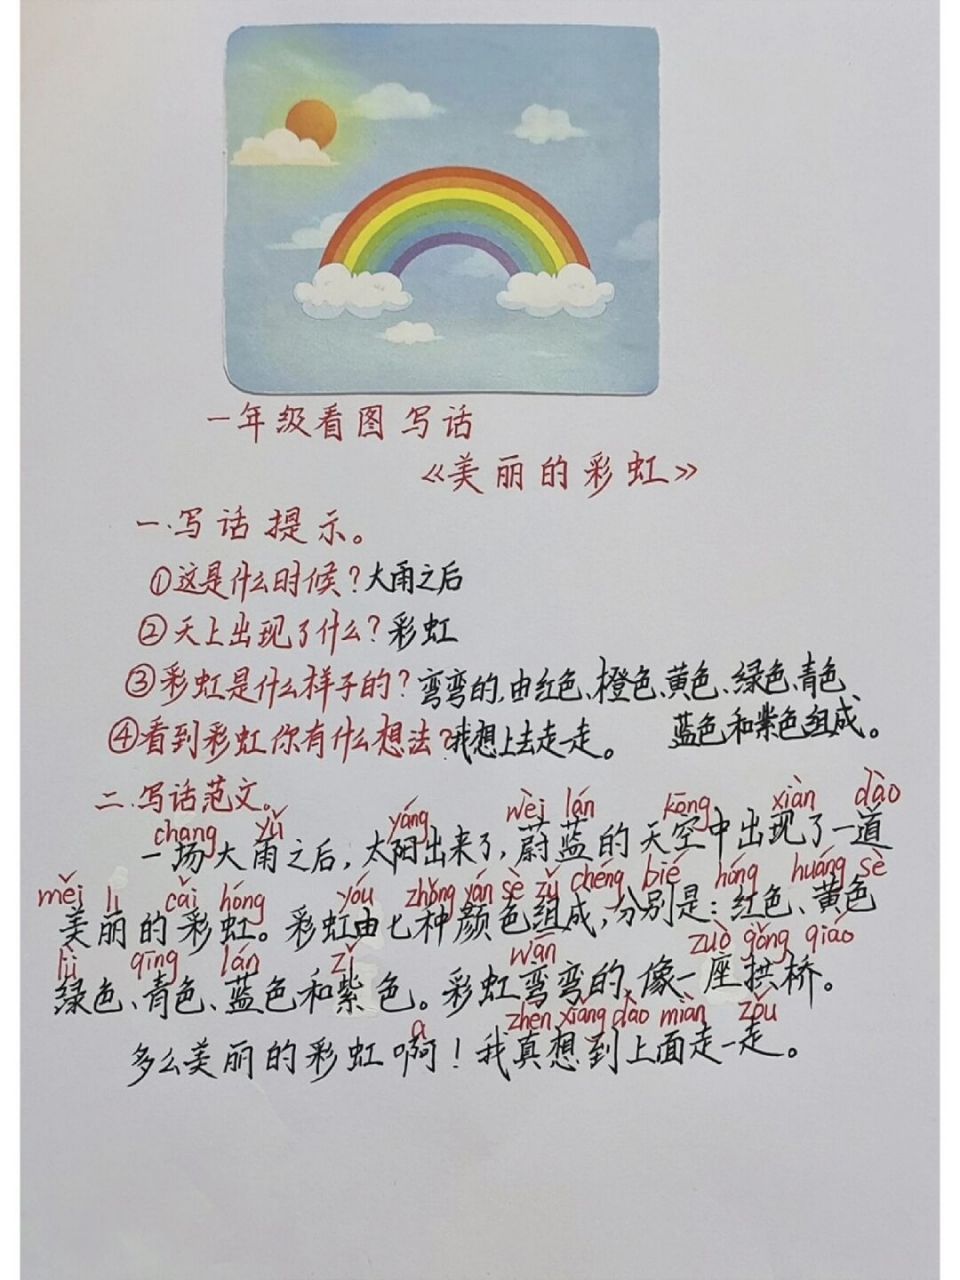 一年级看图写话
《美丽的彩虹》
一.写话提示。
①这是什么时候?大雨之后
②天上出现了什么?彩虹
③彩虹是什么样子的?弯弯的,由红色、橙色、黄色、绿色、青色、
蓝色和紫色组成。
④看到彩虹你有什么想法?我想上去走一走。
二.写话范文。
chang yǔ yáng wèi lán kōng xiàn dào
一场大雨之后,太阳出来了,蔚蓝的天空中出现了一道
měi lì cǎi hóng yóu zhǒng yán sè zǔ chéng bié hóng huáng sè
美丽的彩虹。彩虹由七种颜色组成,分别是:红色、黄色
lǜ qīng lán zǐ wān zuò gǒng qiáo
绿色、青色、蓝色和紫色。彩虹弯弯的,像一座拱桥。
a zhēn xiǎng dào miàn zǒu
多么美丽的彩虹啊!我真想到上面走一走。